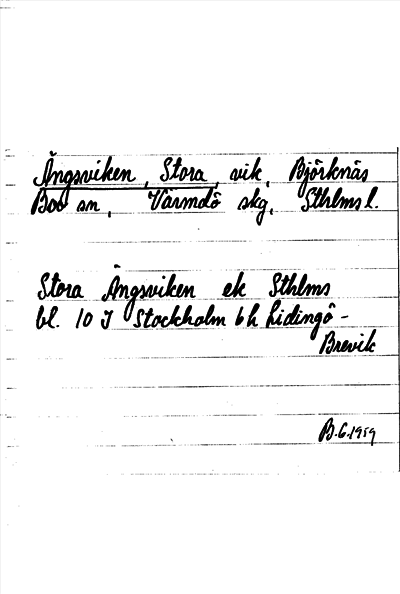 Ängsviken, Stora, vik, Björknäs
Boo sn, Värmdö skg, Sthlms l.
Stora Ängsviken ek Sthlms
bl. 10 I Stockholm bh Lidingö-
Brevik
B.G. 1959